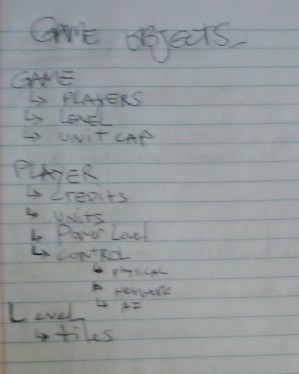 GAME OBJECTS
GAME
↳ PLAYERS
↳ LEVEL
↳ UNIT CAP
PLAYER
↳ CREDITS
↳ UNITS
↳ Power Level
↳ CONTROL
↳ PHYSICAL
↳ NETWORK
↳ AI
Level
↳ tiles